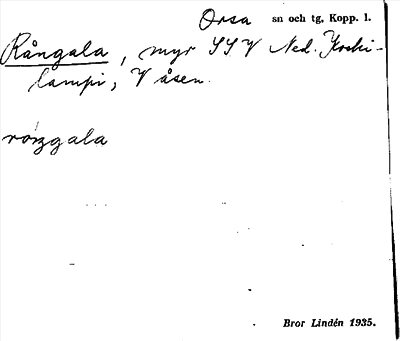 Orsa sn och tg, Kopp. l.
Rångala, myr SSV Ned. Kroki-
lampi, V åsen.
rơŋgala
Bror Lindén 1935.